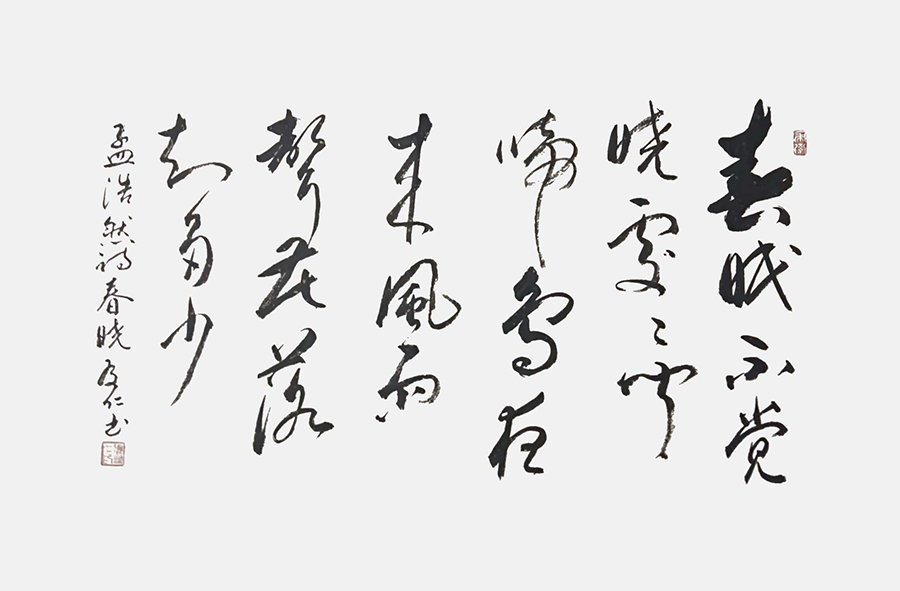 春眠不觉
晓處々闻
啼鸟夜
来風雨
聲花落
知多少
孟浩然诗春晓友仁书